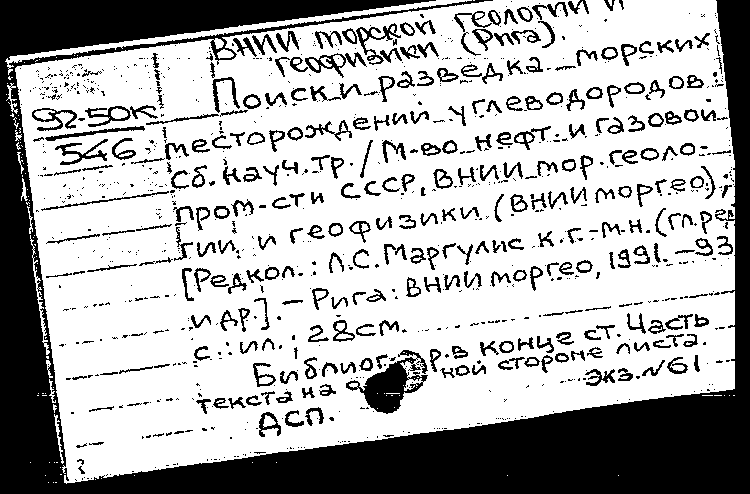 ВНИИ морской геологии и
геофизики (Рига).
Поиск и разведка морских
92-50К
546
месторождений углеводородов:
Сб. науч. тр. / М-во нефт. и газовой
пром-сти СССР, ВНИИ мор. геоло-
гии и геофизики (ВНИИморгео);
[Редкол.: Л.С. Маргулис к.г.-м.н. (гл. ред
и др.]. – Рига: ВНИИморгео, 1991. – 93
с.: ил.; 28см.
Библиог р. в конце ст. Часть
текста на о ной стороне листа.
ДСП.
Экз. №61